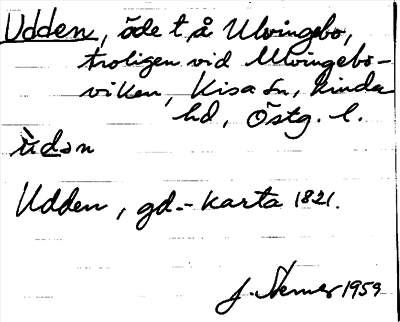 Udden, öde t. å Ulvingebo,
troligen vid Ulvingebo-
viken, Kisa sn, Kinda
hd, Östg. l.
ùdən
Udden, gd.- karta 1821.
J. 1959